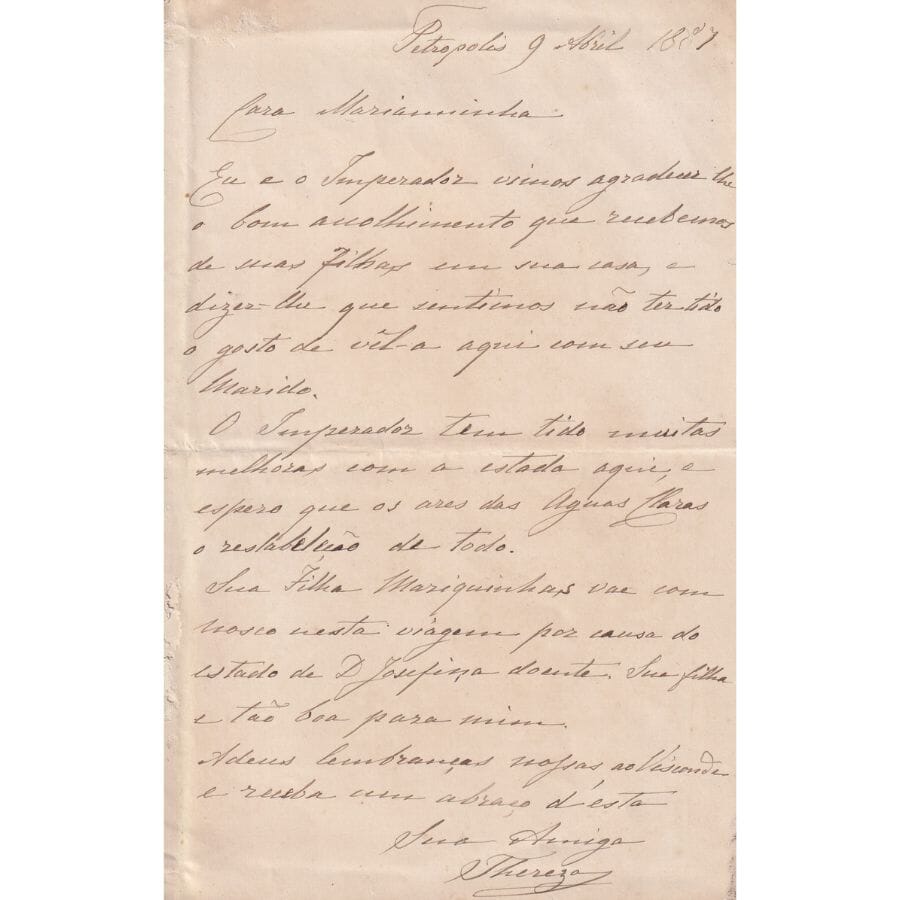 Petropolis 9 Abril 1887
Cara Marianninha
Eu e o Imperador vimos agradecer lhe
o bom acolhimento que recebemos
de suas Filhas em sua casa, e
dizer-lhe que sentimos não ter tido
o gosto de vêl-a aqui com seu
Marido.
O Imperador tem tido muitas
melhoras com a estada aqui, e
espero que os ares das Aguas Claras
o restabeleção de todo.
Sua Filha Mariquinhas vae com
nosco nesta viagem por causa do
estado de D Josefina doente. Sua filha
e tão boa para mim.
Adeus lembranças nossas ao Visconde
e receba um abraço d'esta
Sua Amiga
Thereza